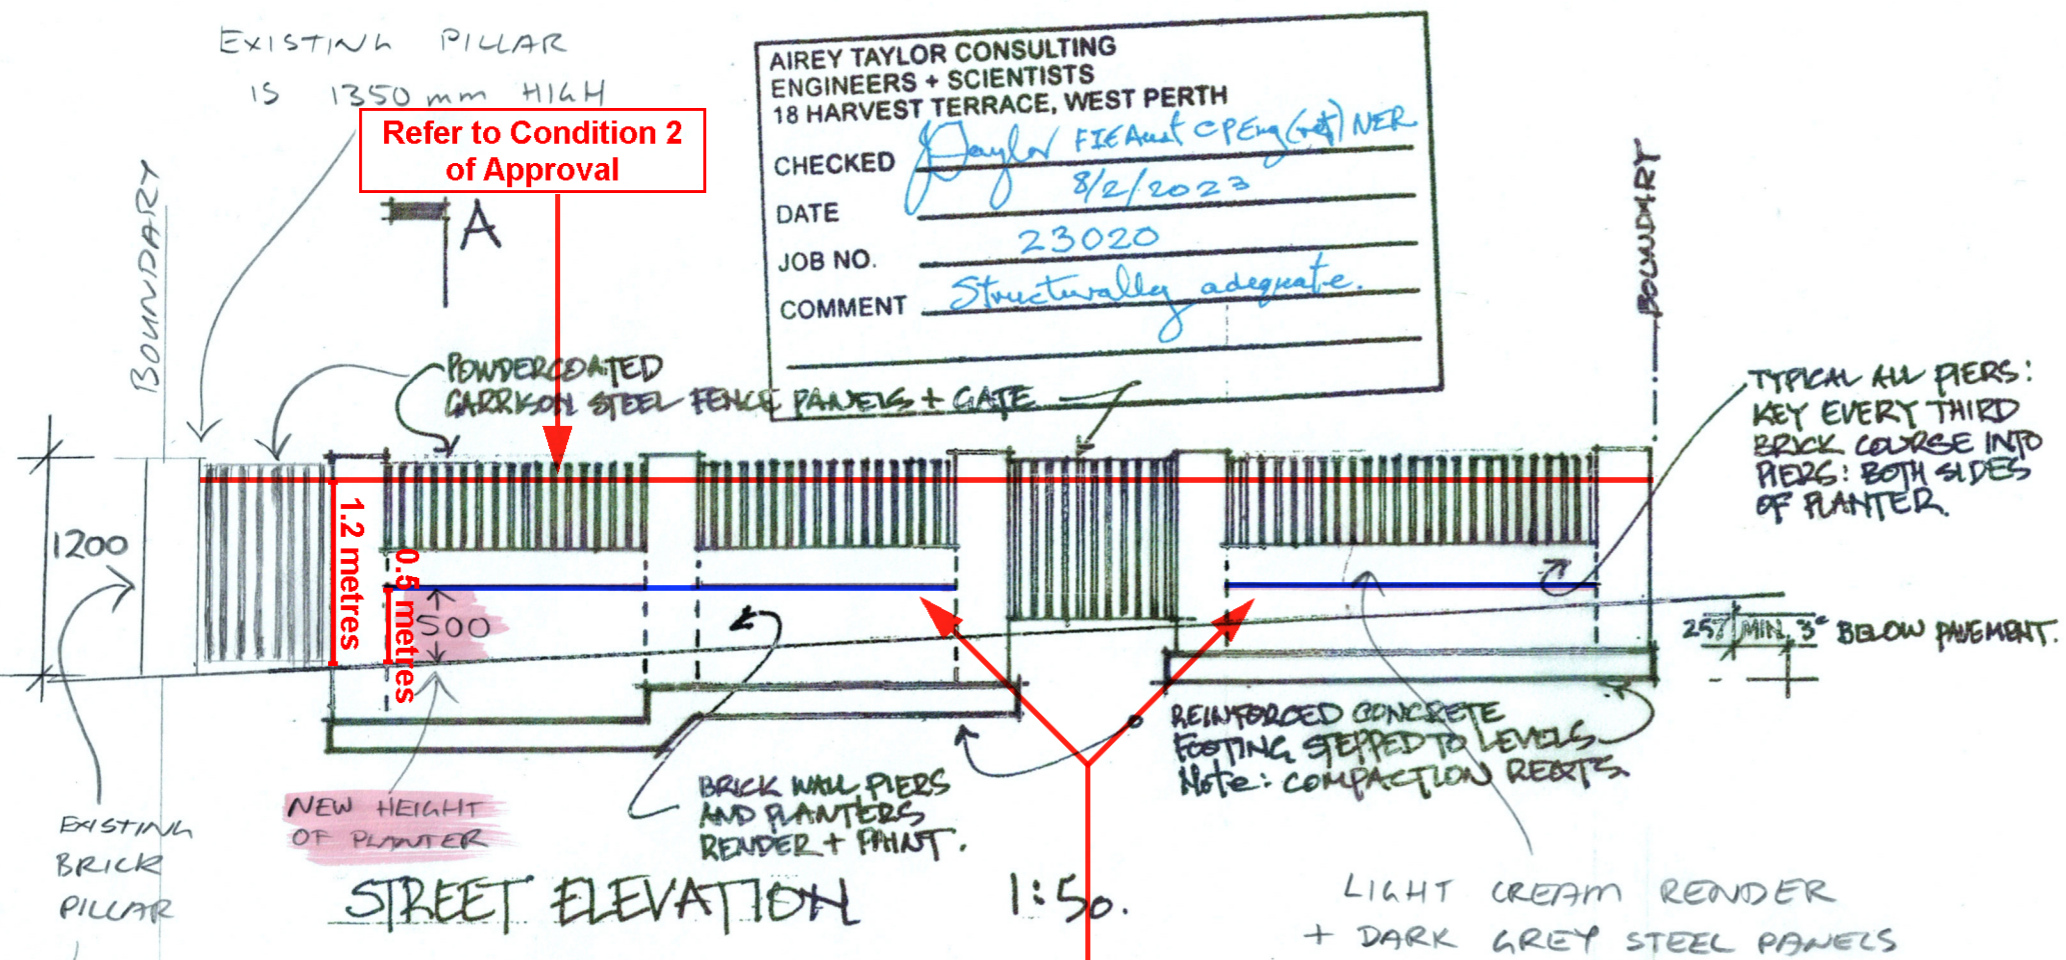 EXISTING PILLAR
IS 1350mm HIGH
Refer to Condition 2
of Approval
AIREY TAYLOR CONSULTING
ENGINEERS + SCIENTISTS
18 HARVEST TERRACE, WEST PERTH
CHECKED Taylor FIEAust CPEng (ret) NER
DATE 8/2/2023
JOB NO. 23020
COMMENT Structurally adequate.
BOUNDARY
A
BOUNDARY
POWDERCOATED
GARRISON STEEL FENCE PANELS + GATE
TYPICAL ALL PIERS:
KEY EVERY THIRD
BRICK COURSE INTO
PIERS: BOTH SIDES
OF PLANTER.
1200
1.2 metres
0.5 metres
500
257 MIN, 3c BELOW PAVEMENT.
REINFORCED CONCRETE
FOOTING STEPPED TO LEVELS
Note: COMPACTION REQTS.
BRICK WALL PIERS
AND PLANTERS
RENDER + PAINT.
NEW HEIGHT
OF PLANTER
EXISTING
BRICK
PILLAR
STREET ELEVATION 1:50.
LIGHT CREAM RENDER
+ DARK GREY STEEL PANELS